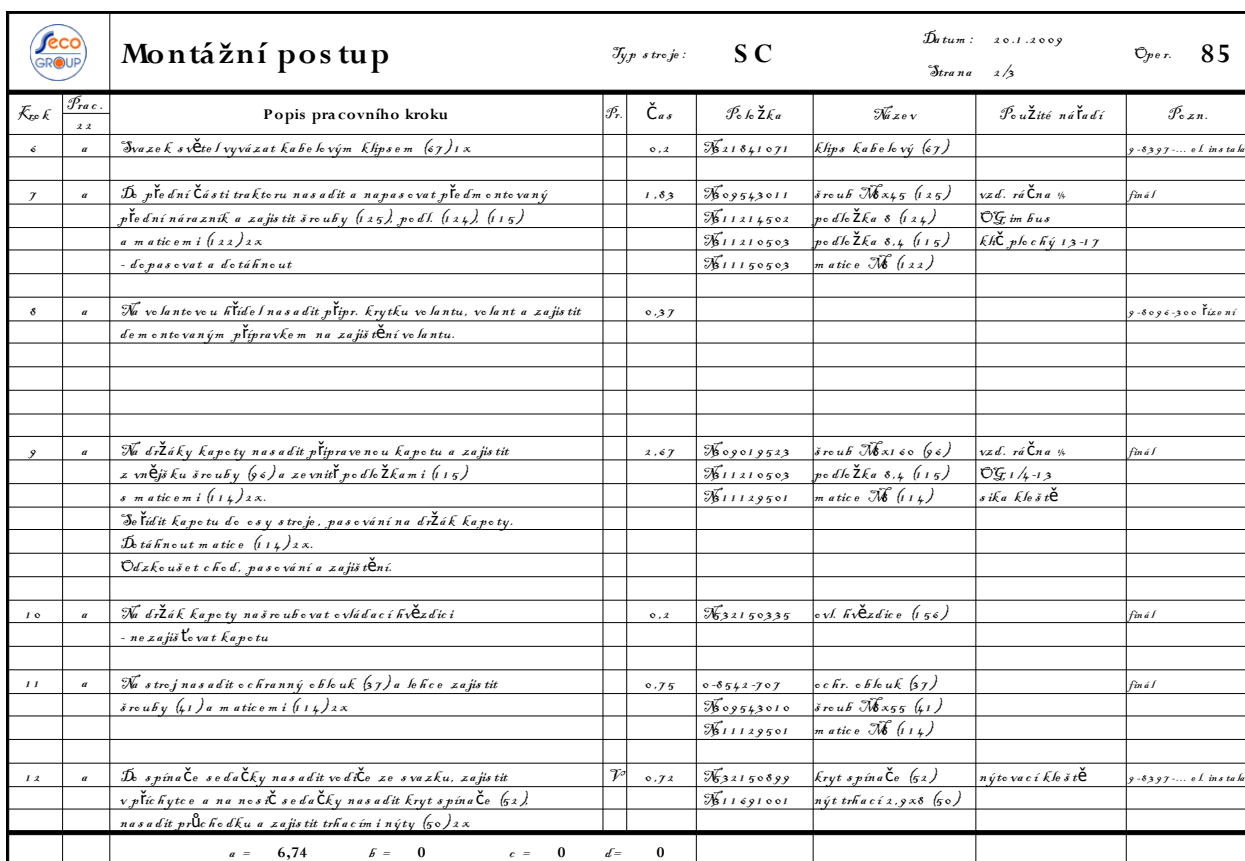 Seco GROUP
Montážní postup Typ stroje: SC Datum: 20.1.2009 Oper. 85
Strana 2/3
Krok Prac. 22 Popis pracovního kroku Pr. Čas Položka Název Použité nářadí Pozn.
6 a Svazek světel vyvázat kabelovým klipsem (67) 1x 0,2 N321841071 klips kabelový (67) 9-8397-... el. instala
7 a Do přední části traktoru nasadit a napasovat předmontovaný 1,83 N309543011 šroub M8x45 (125) vzd. ráčna ¼ finál
přední nárazník a zajistit šrouby (125), podl. (124), (115) N311214502 podložka 8 (124) OG, imbus
a maticemi (122) 2x N311210503 podložka 8,4 (115) klíč plochý 13-17
- dopasovat a dotáhnout N311150503 matice M8 (122)
8 a Na volantovou hřídel nasadit připr. krytku volantu, volant a zajistit 0,37 9-8096-300 řízení
demontovaným přípravkem na zajištění volantu.
9 a Na držáky kapoty nasadit připravenou kapotu a zajistit 2,67 N309019523 šroub M8x160 (96) vzd. ráčna ¼ finál
z vnějšku šrouby (96) a zevnitř podložkami (115) N311210503 podložka 8,4 (115) OG, 1/4-13
s maticemi (114) 2x. N311129501 matice M8 (114) sika kleště
Seřídit kapotu do osy stroje, pasování na držák kapoty.
Dotáhnout matice (114) 2x.
Odzkoušet chod, pasování a zajištění.
10 a Na držák kapoty našroubovat ovládací hvězdici 0,2 N532150335 ovl. hvězdice (156) finál
- nezajišťovat kapotu
11 a Na stroj nasadit ochranný oblouk (37) a lehce zajistit 0,75 0-8542-707 ochr. oblouk (37) finál
šrouby (41) a maticemi (114) 2x N309543010 šroub M8x55 (41)
N311129501 matice M8 (114)
12 a Do spínače sedačky nasadit vodiče ze svazku, zajistit V 0,72 N532150899 kryt spínače (52) nýtovací kleště 9-8397-... el. instala
v příchytce a na nosič sedačky nasadit kryt spínače (52), N311691001 nýt trhací 2,9x8 (50)
nasadit průchodku a zajistit trhacími nýty (50) 2x
a = 6,74 b = 0 c = 0 d= 0